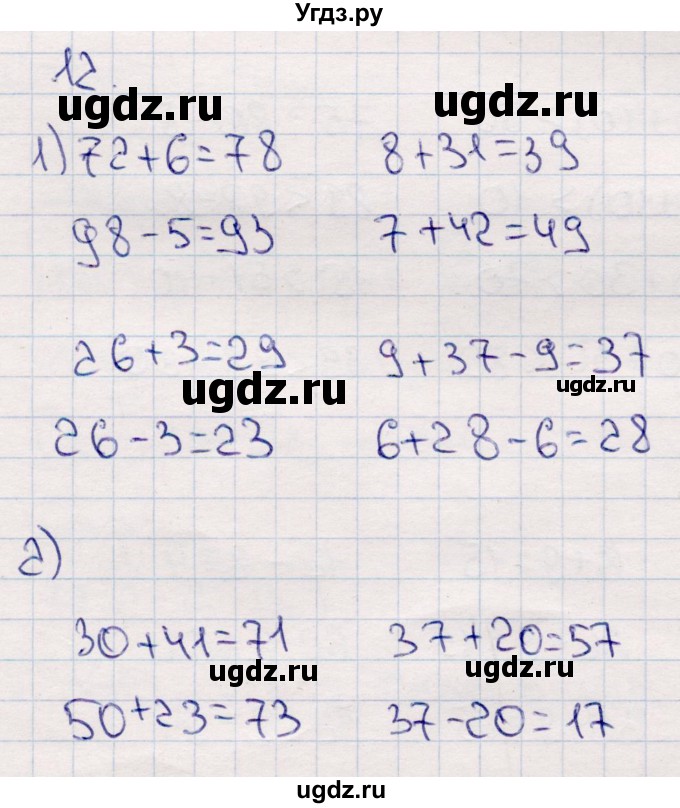 Угдз.ру
12.
ugdz.ru ugdz.ru
1) 72+6=78 8+31=39
98-5=93 7+42=49
26+3=29 9+37-9=37
ugdz.ru ugdz.ru
26-3=23 6+28-6=28
2)
30+41=71 37+20=57
ugdz.ru ugdz.ru
50+23=73 37-20=17
ugdz.ru